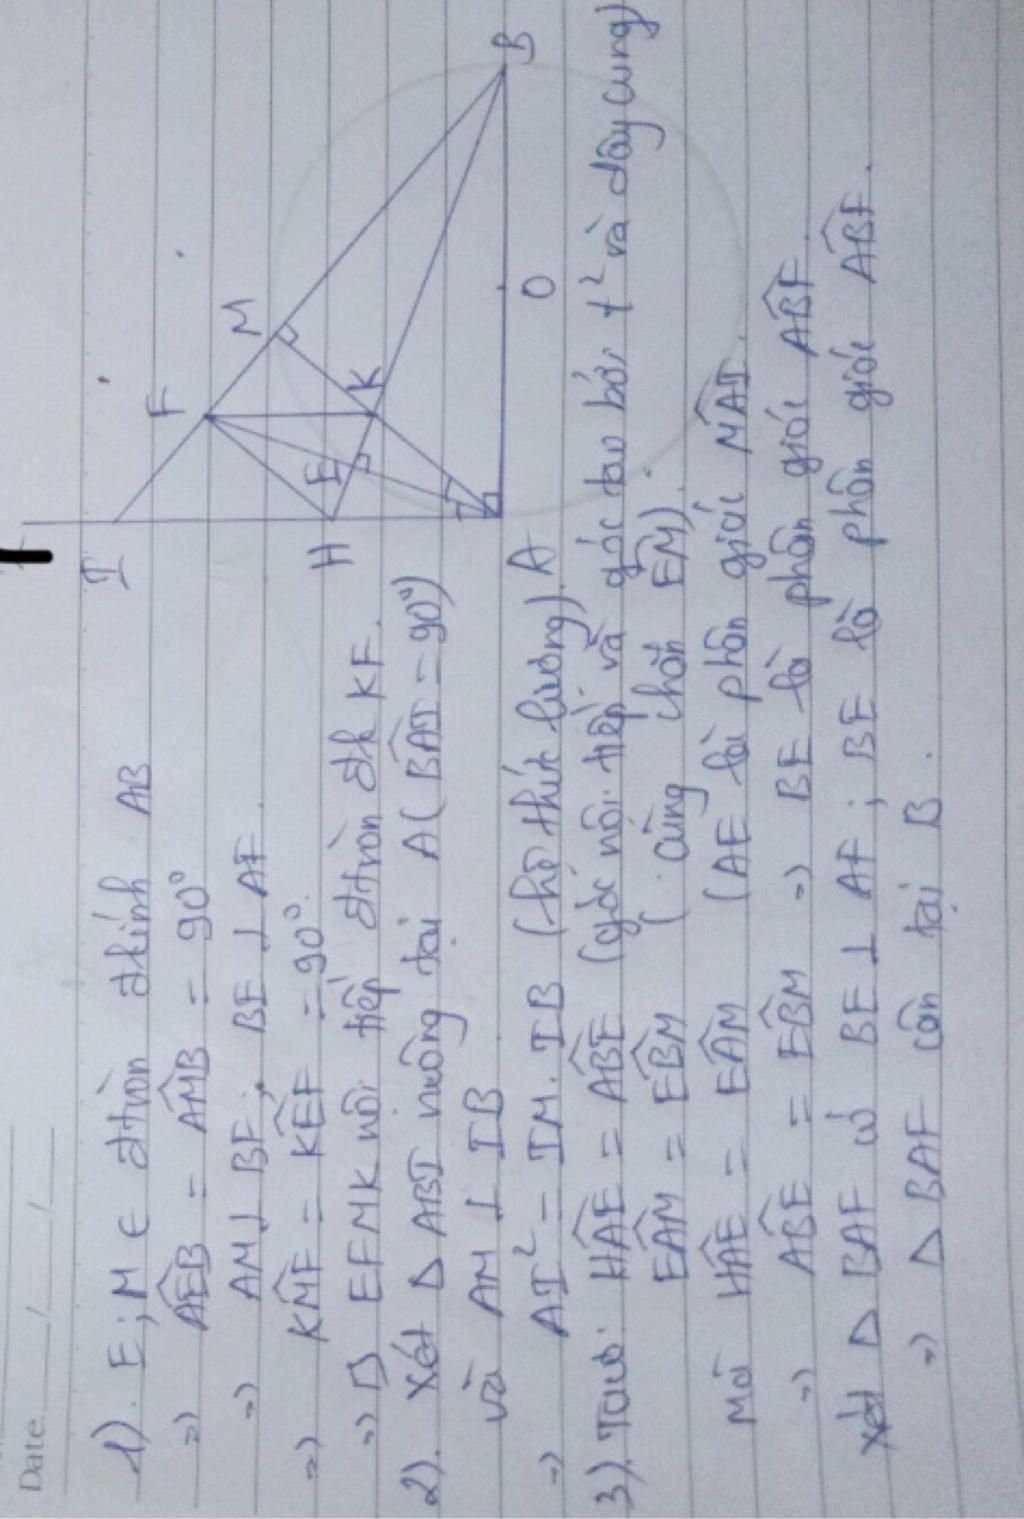 Date / /
1). E; M ∈ đtròn đkính AB
=) AÊB = AM̂B = 90°
=) AM ⊥ BF; BE ⊥ AF.
=) KM̂F = KÊF = 90°.
=) □ EFMK nội tiếp đtròn đk KF.
2). Xét Δ ABI vuông tại A (BÂI = 90°)
và AM ⊥ IB
=) AI² = IM.IB (hệ thức lượng).
3). Ta có: HÂE = AB̂E (góc nội tiếp và góc tạo bởi t² và dây cung)
EÂM = EB̂M (cùng chắn EM).
Mà HÂE = EÂM (AE là phân giác MÂI.
=) AB̂E = EB̂M =) BE là phân giác AB̂F.
Xét Δ BAF có BE ⊥ AF; BE là phân giác AB̂F.
=) Δ BAF cân tại B.
I
F
M
H
E
K
A
O
B